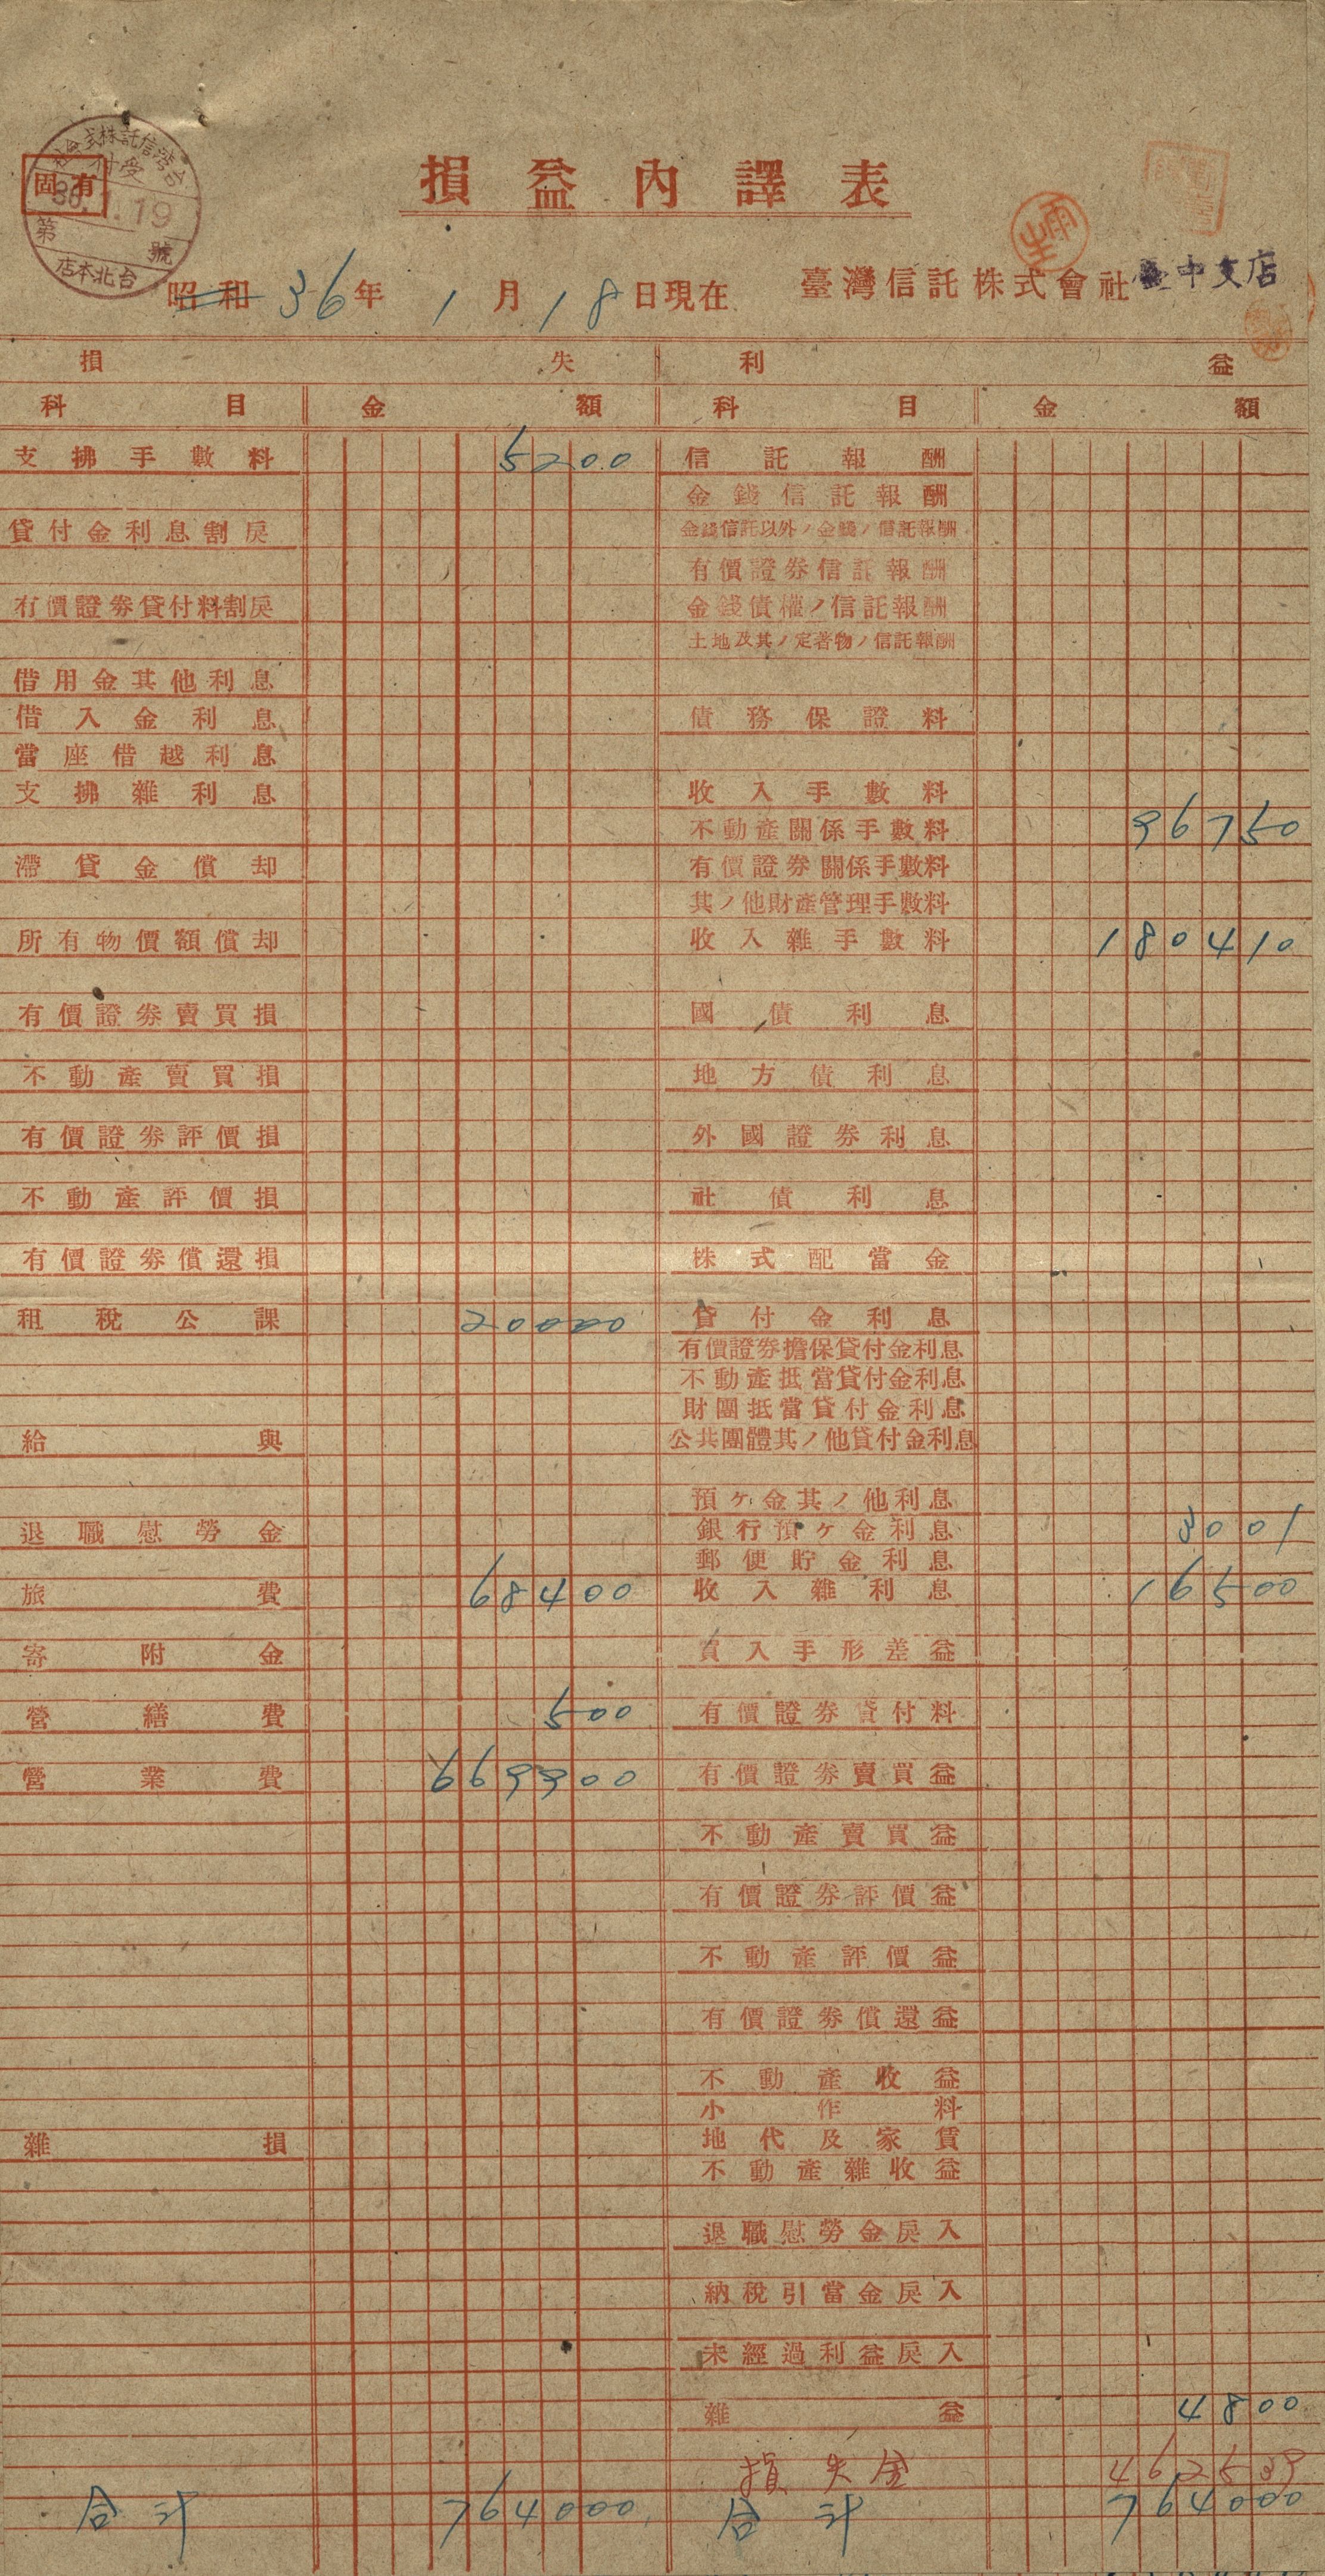 損益內譯表
台灣信託株式会社
受付
固有
36.1.19
第 號
台北本店
昭和36年1月18日現在 臺灣信託株式會社臺中支店
損失 利益
科目 金額 科目 金額
支拂手數料 5200 信託報酬
金錢信託報酬
貸付金利息割戾 金錢信託以外ノ金錢ノ信託報酬
有價證券信託報酬
有價證券貸付料割戾 金錢債權ノ信託報酬
土地及其ノ定著物ノ信託報酬
借用金其他利息
借入金利息 債務保證料
當座借越利息
支拂雜利息 收入手數料
不動產關係手數料 96750
滯貸金償却 有價證券關係手數料
其ノ他財產管理手數料
所有物價額償却 收入雜手數料 180410
有價證券賣買損 國債利息
不動產賣買損 地方債利息
有價證券評價損 外國證券利息
不動產評價損 社債利息
有價證券償還損 株式配當金
租稅公課 20000 貸付金利息
有價證券擔保貸付金利息
不動產抵當貸付金利息
財團抵當貸付金利息
給與 公共團體其ノ他貸付金利息
預ケ金其ノ他利息
退職慰勞金 銀行預ケ金利息 3001
郵便貯金利息
旅費 68400 收入雜利息 16500
寄附金 買入手形差益
營繕費 500 有價證券貸付料
營業費 669900 有價證券賣買益
不動產賣買益
有價證券評價益
不動產評價益
有價證券償還益
不動產收益
小作料
雜損 地代及家賃
不動產雜收益
退職慰勞金戾入
納稅引當金戾入
未經過利益戾入
雜益 4800
損失金 462539
合計 764000 合計 764000